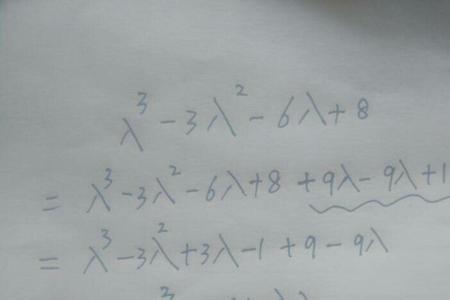 λ³ - 3λ² - 6λ + 8
= λ³ - 3λ² - 6λ + 8 + 9λ - 9λ + 1
= λ³ - 3λ² + 3λ - 1 + 9 - 9λ
3